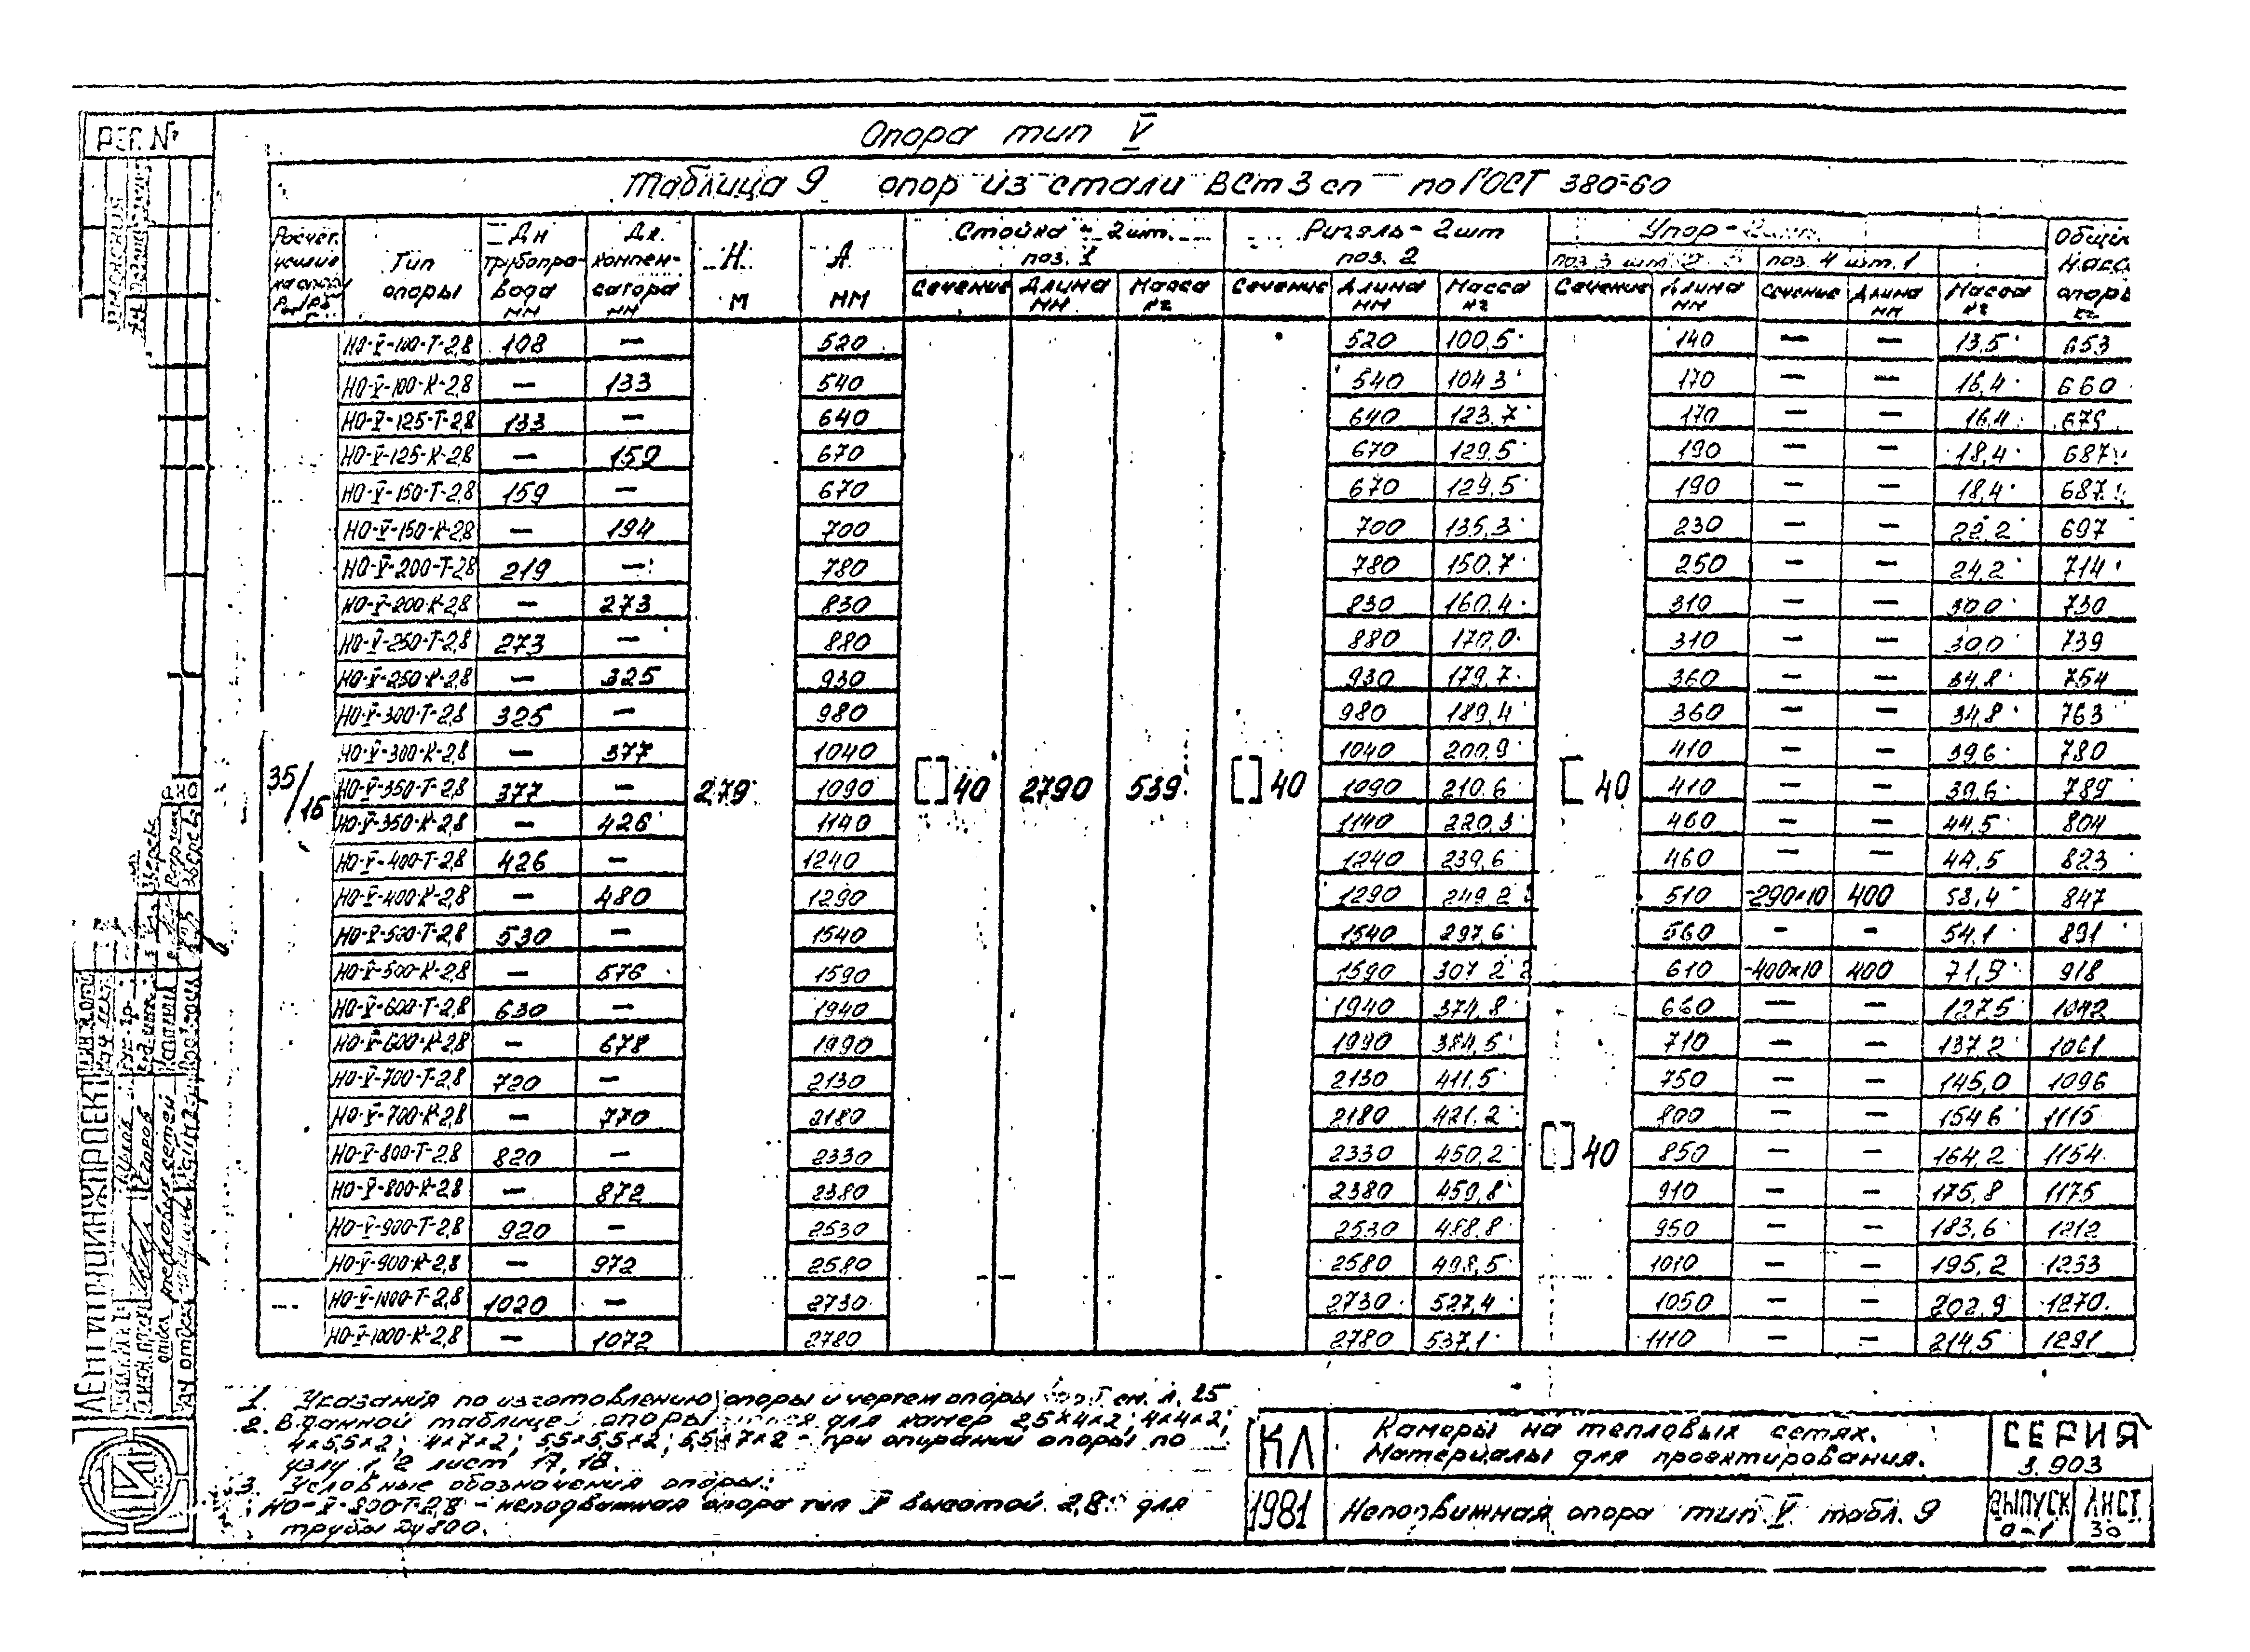 РЕГ. №
Опора тип V
Таблица 9 опор из стали ВСт3сп по ГОСТ 380-60
Расчет. усилие на опору Тип опоры Дн трубопровода мм Дк. компенсатора мм Н м А мм Стойка - 2шт. поз. 1 Ригель - 2шт поз. 2 Упор - поз. 3 шт. 2 поз. 4 шт. 1
Сечение Длина мм Масса кг Сечение Длина мм Масса кг Сечение Длина мм Сечение Длина мм Масса кг опоры кг
НО-V-100-Т-2,8 108 — 520 520 100,5 140 — — 13,5 653
НО-V-100-К-2,8 — 133 540 540 104,3 170 — — 16,4 660
НО-V-125-Т-2,8 133 — 640 640 123,7 170 — — 16,4 679
НО-V-125-К-2,8 — 159 670 670 129,5 190 — — 18,4 687
НО-V-150-Т-2,8 159 — 670 670 129,5 190 — — 18,4 687
НО-V-150-К-2,8 — 194 700 700 135,3 230 — — 22,2 697
НО-V-200-Т-2,8 219 — 780 780 150,7 250 — — 24,2 714
НО-V-200-К-2,8 — 273 830 830 160,4 310 — — 30,0 730
НО-V-250-Т-2,8 273 — 880 880 170,0 310 — — 30,0 739
НО-V-250-К-2,8 — 325 930 930 179,7 360 — — 34,8 754
НО-V-300-Т-2,8 325 — 980 980 189,4 360 — — 34,8 763
НО-V-300-К-2,8 — 377 1040 1040 200,9 410 — — 39,6 780
35/15 НО-V-350-Т-2,8 377 — 2,79 1090 [ ] 40 2790 539 [ ] 40 1090 210,6 [ 40 410 — — 39,6 789
НО-V-350-К-2,8 — 426 1140 1140 220,3 460 — — 44,5 804
НО-V-400-Т-2,8 426 — 1240 1240 239,6 460 — — 44,5 823
НО-V-400-К-2,8 — 480 1290 1290 249,2 510 -290×10 400 58,4 847
НО-V-500-Т-2,8 530 — 1540 1540 297,6 560 — — 54,1 891
НО-V-500-К-2,8 — 576 1590 1590 307,2 610 -400×10 400 71,9 918
НО-V-600-Т-2,8 630 — 1940 1940 374,8 660 — — 127,5 1042
НО-V-600-К-2,8 — 678 1990 1990 384,5 710 — — 137,2 1061
НО-V-700-Т-2,8 720 — 2130 2130 411,5 750 — — 145,0 1096
НО-V-700-К-2,8 — 770 2180 2180 421,2 800 — — 154,6 1115
НО-V-800-Т-2,8 820 — 2330 2330 450,2 [ ] 40 850 — — 164,2 1154
НО-V-800-К-2,8 — 872 2380 2380 459,8 910 — — 175,8 1175
НО-V-900-Т-2,8 920 — 2530 2530 488,8 950 — — 183,6 1212
НО-V-900-К-2,8 — 972 2580 2580 498,5 1010 — — 195,2 1233
— НО-V-1000-Т-2,8 1020 — 2730 2730 527,4 1050 — — 202,9 1270
НО-V-1000-К-2,8 — 1072 2780 2780 537,1 1110 — — 214,5 1291
1. Указания по изготовлению опоры и чертеж опоры см. л. 25
2. В данной таблице опоры для камер 2,5×4×2; 4×4×2;
4×5,5×2; 4×7×2; 5,5×5,5×2; 5,5×7×2 - при опирании опоры по
узлу 1, 2 лист 17, 18.
3. Условные обозначения опоры:
НО-V-800-Т-2,8 - неподвижная опора тип V высотой 2,8 для
трубы Ду 800.
КЛ
1981
Камеры на тепловых сетях.
Материалы для проектирования.
Неподвижная опора тип V табл. 9
СЕРИЯ
3.903
ВЫПУСК
0-1
ЛИСТ
30
ЛЕНГИПРОИНЖПРОЕКТ